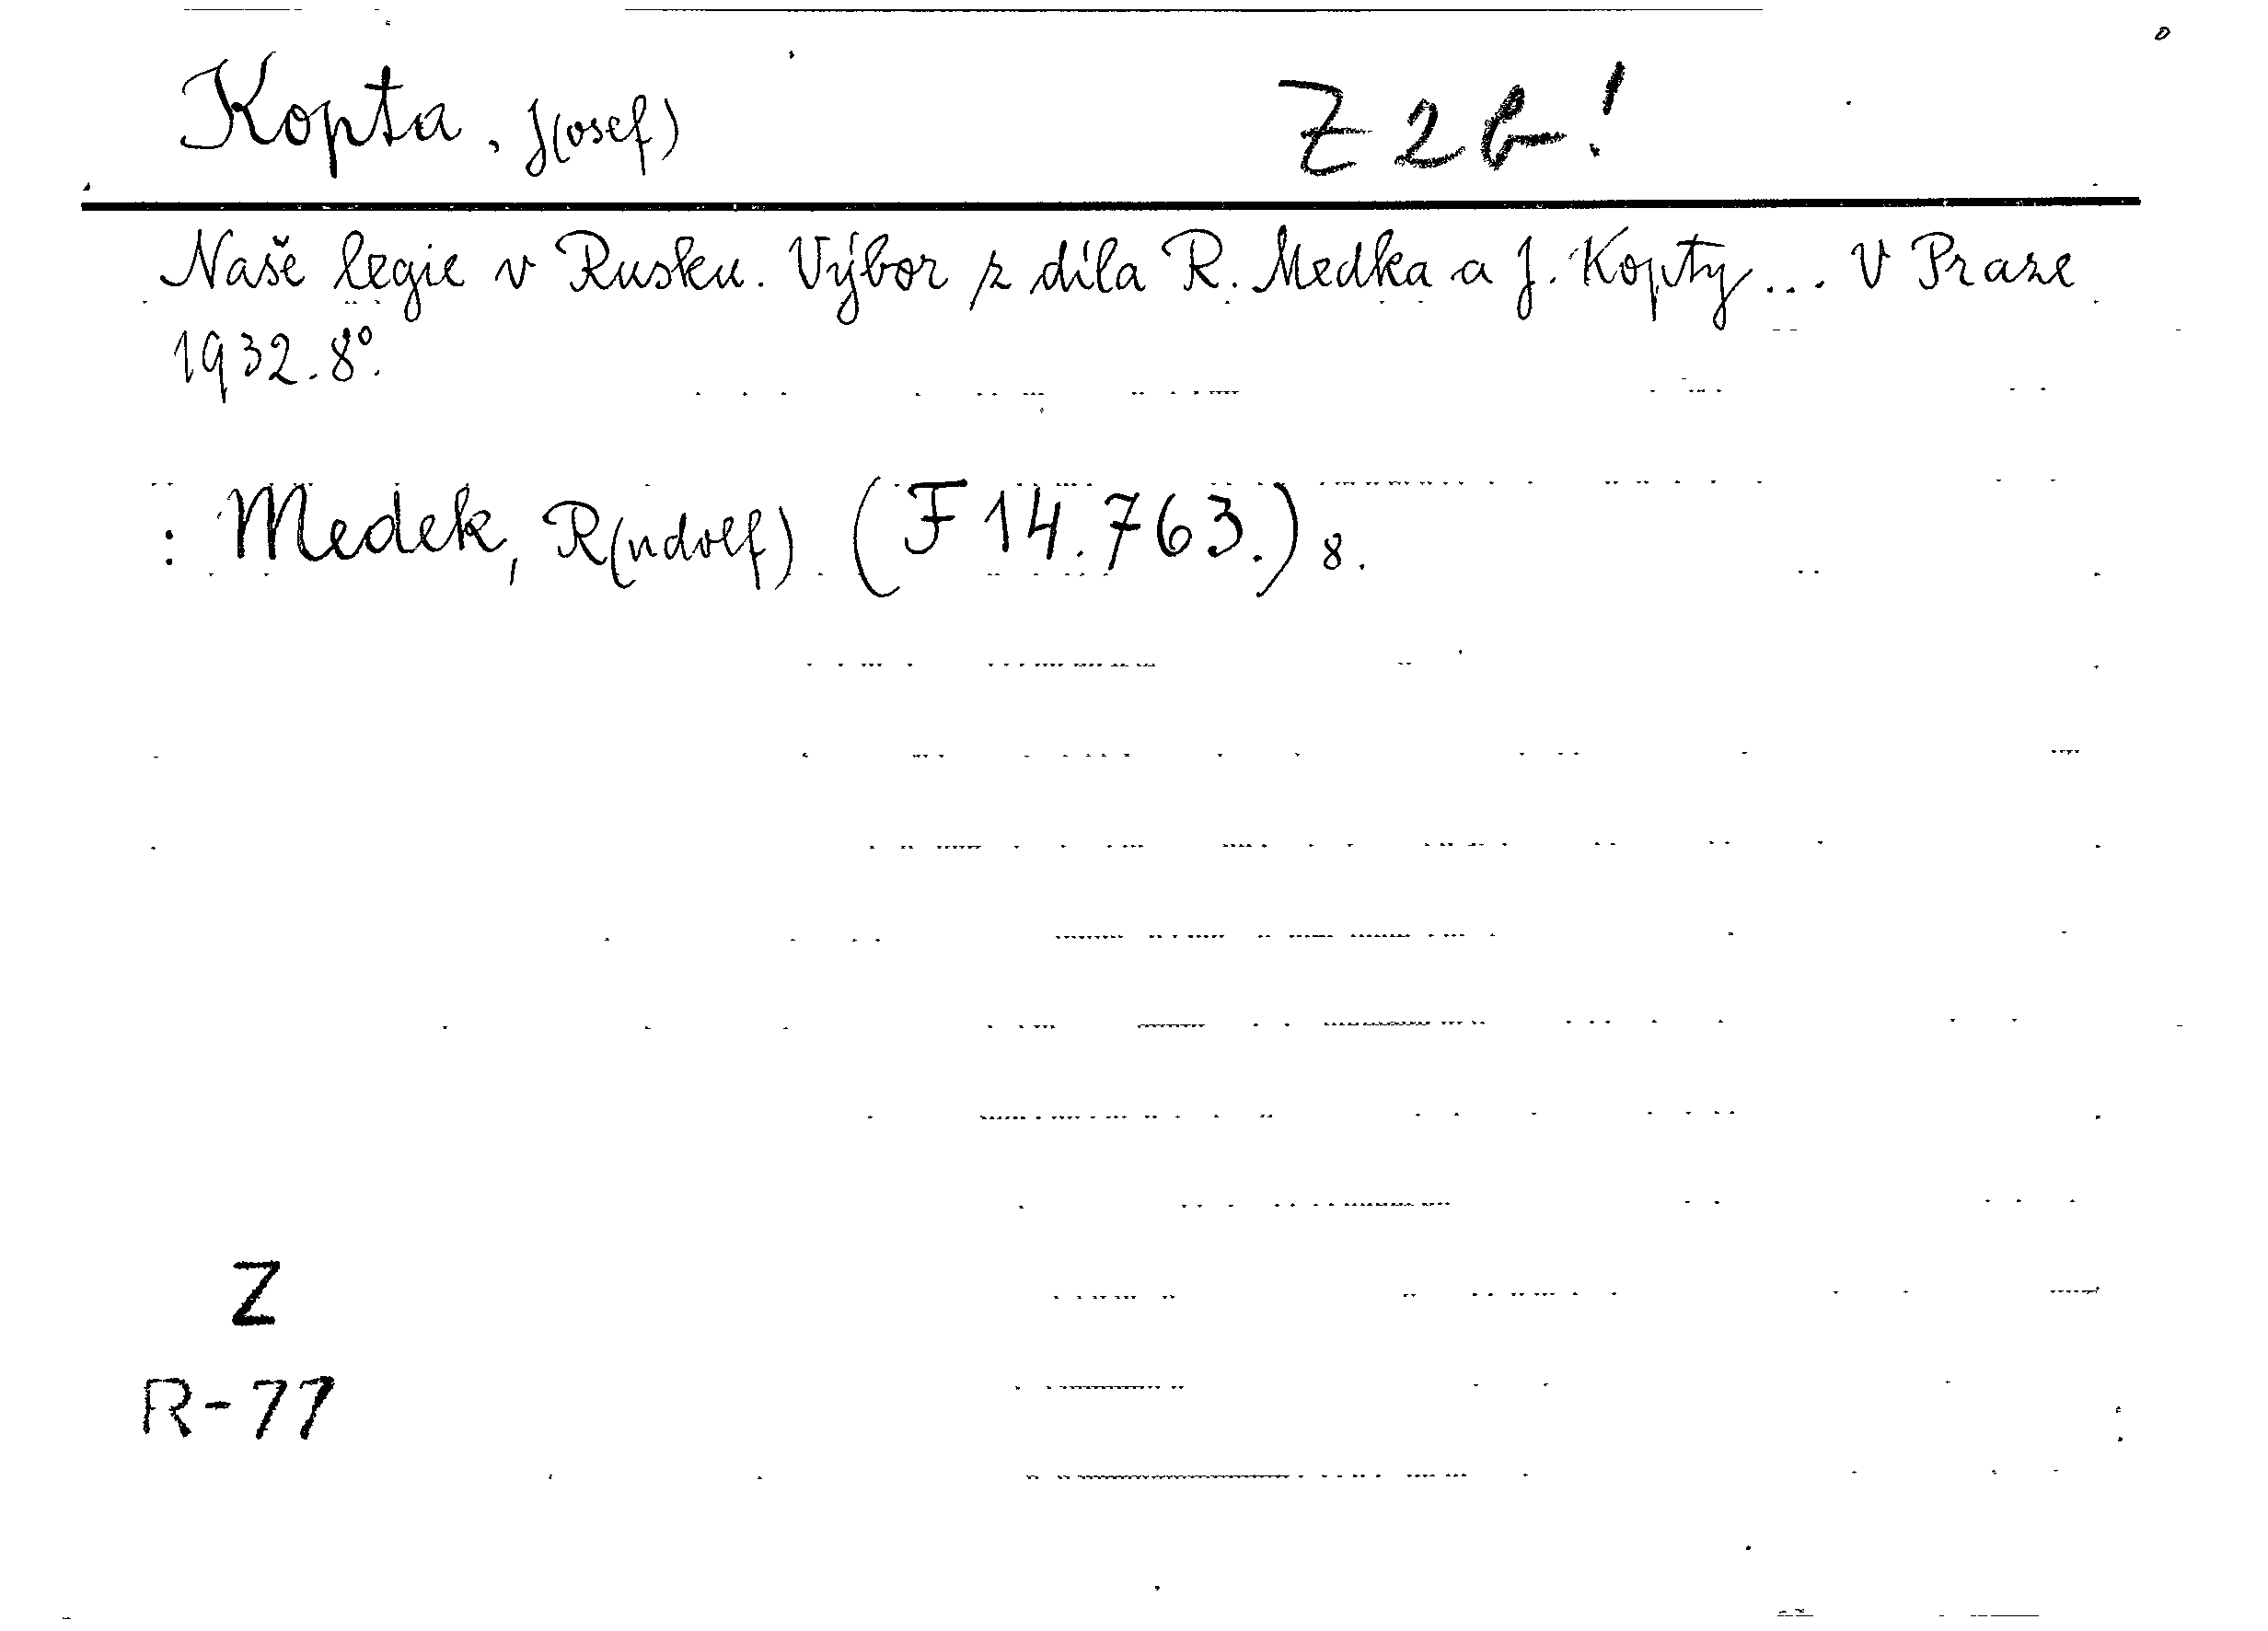 Kopta, J(osef) Z 2 b!
Naše legie v Rusku. Výbor z díla R. Medka a J. Kopty... V Praze
1932. 8°.
: Medek, R(udolf) (F 14.763.) 8.
Z
R-77